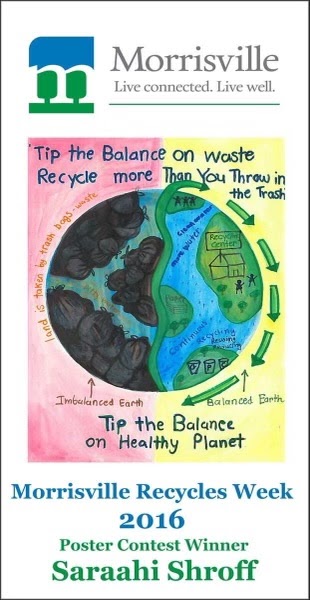 Morrisville
Live connected. Live well.
Tip the Balance on waste
Recycle more Than You Throw in
the Trash
land is taken by trash bags. waste
Clean water
more water
Recycling
Center
Continuous
recycling
reusing
reducing
Imbalanced Earth
Balanced Earth
Tip the Balance
on Healthy Planet
Morrisville Recycles Week
2016
Poster Contest Winner
Saraahi Shroff